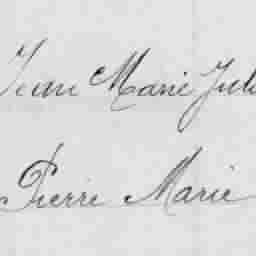 Jean Marie Juli
Pierre Marie